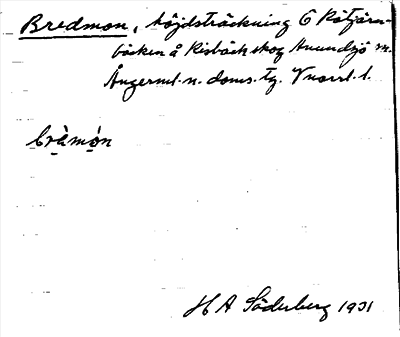 Bredmon, höjdsträckning ö Rötjärn-
bäcken å Risbäck skog Anundsjö sn.
Ångerml. n. doms. tg. Vnorrl. l.
brὲ̀món
H A Söderberg 1931